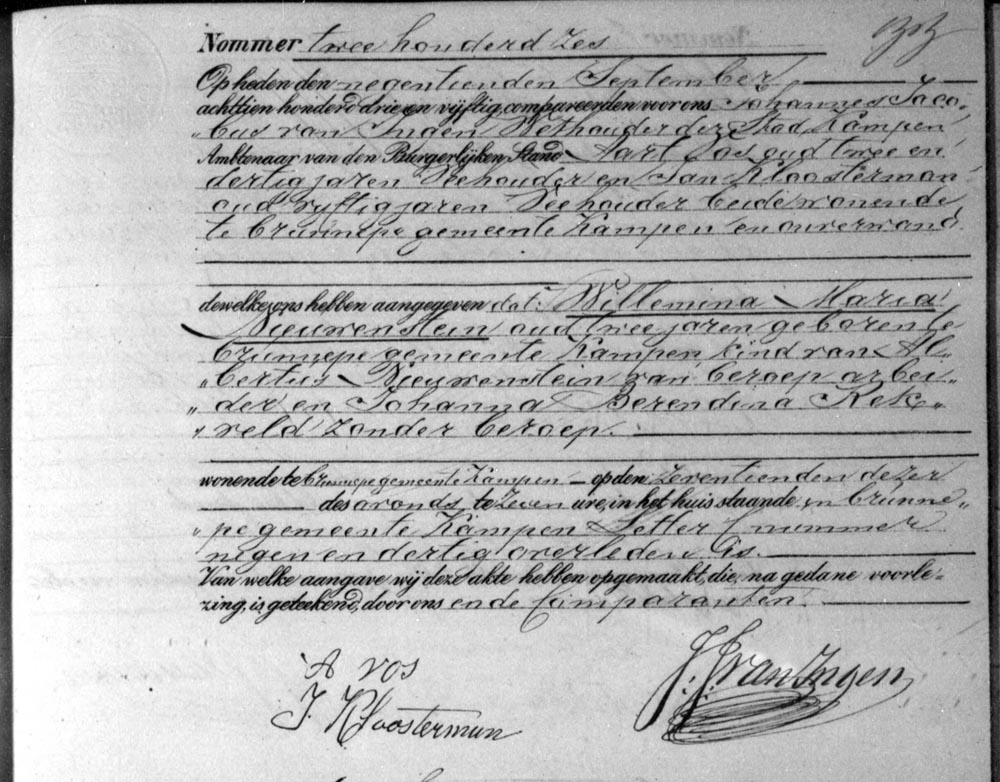 Nommer twee honderd zes
Op heden den negentienden September
achttien honderd drie en vijftig, compareerden voor ons Johannes Jaco„
„bus van Ingen Wethouder der Stad Kampen
Ambtenaar van den Burgerlijken Stand Aart Vos oud twee en
dertig jaren Veehouder en Jan Kloosterman
oud vyftig jaren Veehouder beide wonende
te Brunnepe gemeente Kampen en onverwand
dewelke ons hebben aangegeven dat: Willemina Maria
Nieuwenstein oud twee jaren geboren te
Brunnepe gemeente Kampen kind van Al„
„bertus Nieuwenstein van beroep arbei„
„der en Johanna Berendina Rek„
„veld zonder beroep.
wonende te Brunnepe gemeente Kampen op den zeventienden dezer
des avonds te zeven ure, in het huis staande in Brunne„
„pe gemeente Kampen Letter nummer
negen en dertig overleden is.
Van welke aangave wij deze akte hebben opgemaakt, die, na gedane voorle-
zing, is geteekend, door ons en de Comparanten.
A vos
J. Kloosterman
J. J. van Ingen